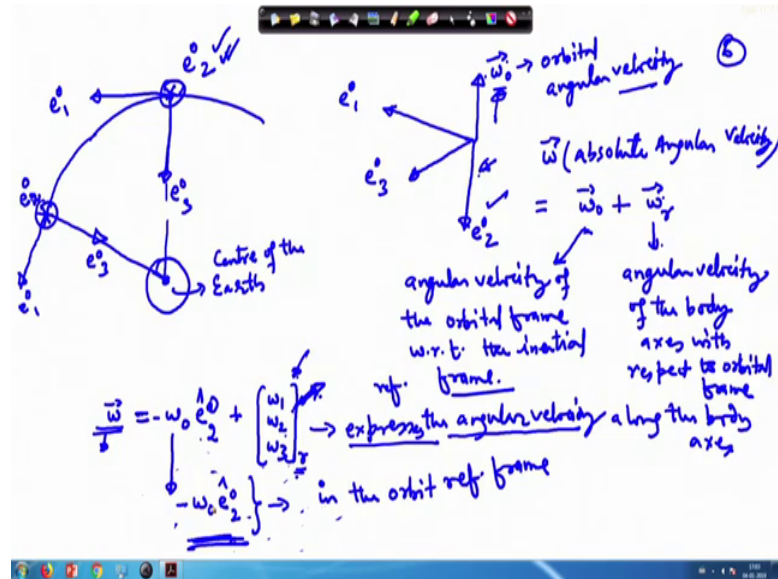 e₂⁰
e₁⁰
e₃⁰
e₂⁰
e₃⁰
e₁⁰
Centre of the
Earth
6
ω₀ → orbital
angular velocity
e₁⁰
e₃⁰
e₂⁰
ω (absolute Angular velocity)
= ω₀ + ωᵣ
angular velocity of
the orbital frame
w.r.t. the inertial
ref. frame.
angular velocity
of the body
axes with
respect to orbital
frame
ω = -ω₀ ê₂⁰ + [ω₁ ω₂ ω₃]ᵣ → expresses the angular velocity along the body
axes
-ω₀ ê₂⁰ } → in the orbit ref. frame